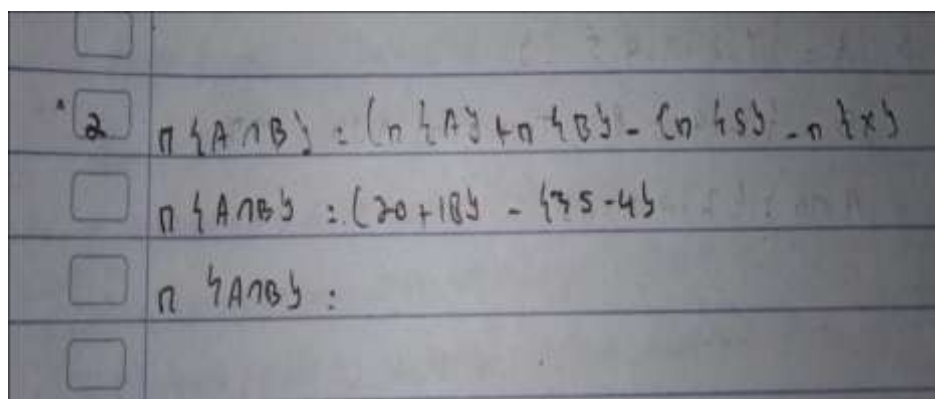 2 n {A∩B} = (n {A} + n {B} - (n {S} - n {x}
n {A∩B} : (20 + 18} - {35 - 4}
n {A∩B} :